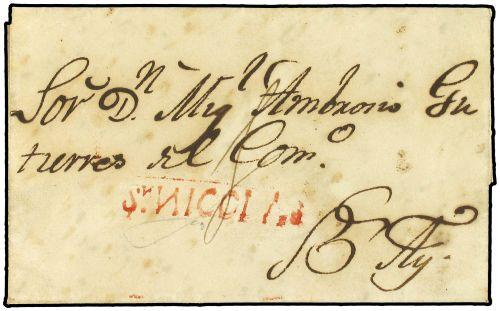 Sor. Dn. Migl. Ambrosio Gu
tierres del Como.
Sn. NICOLAS
Bs. Ays.